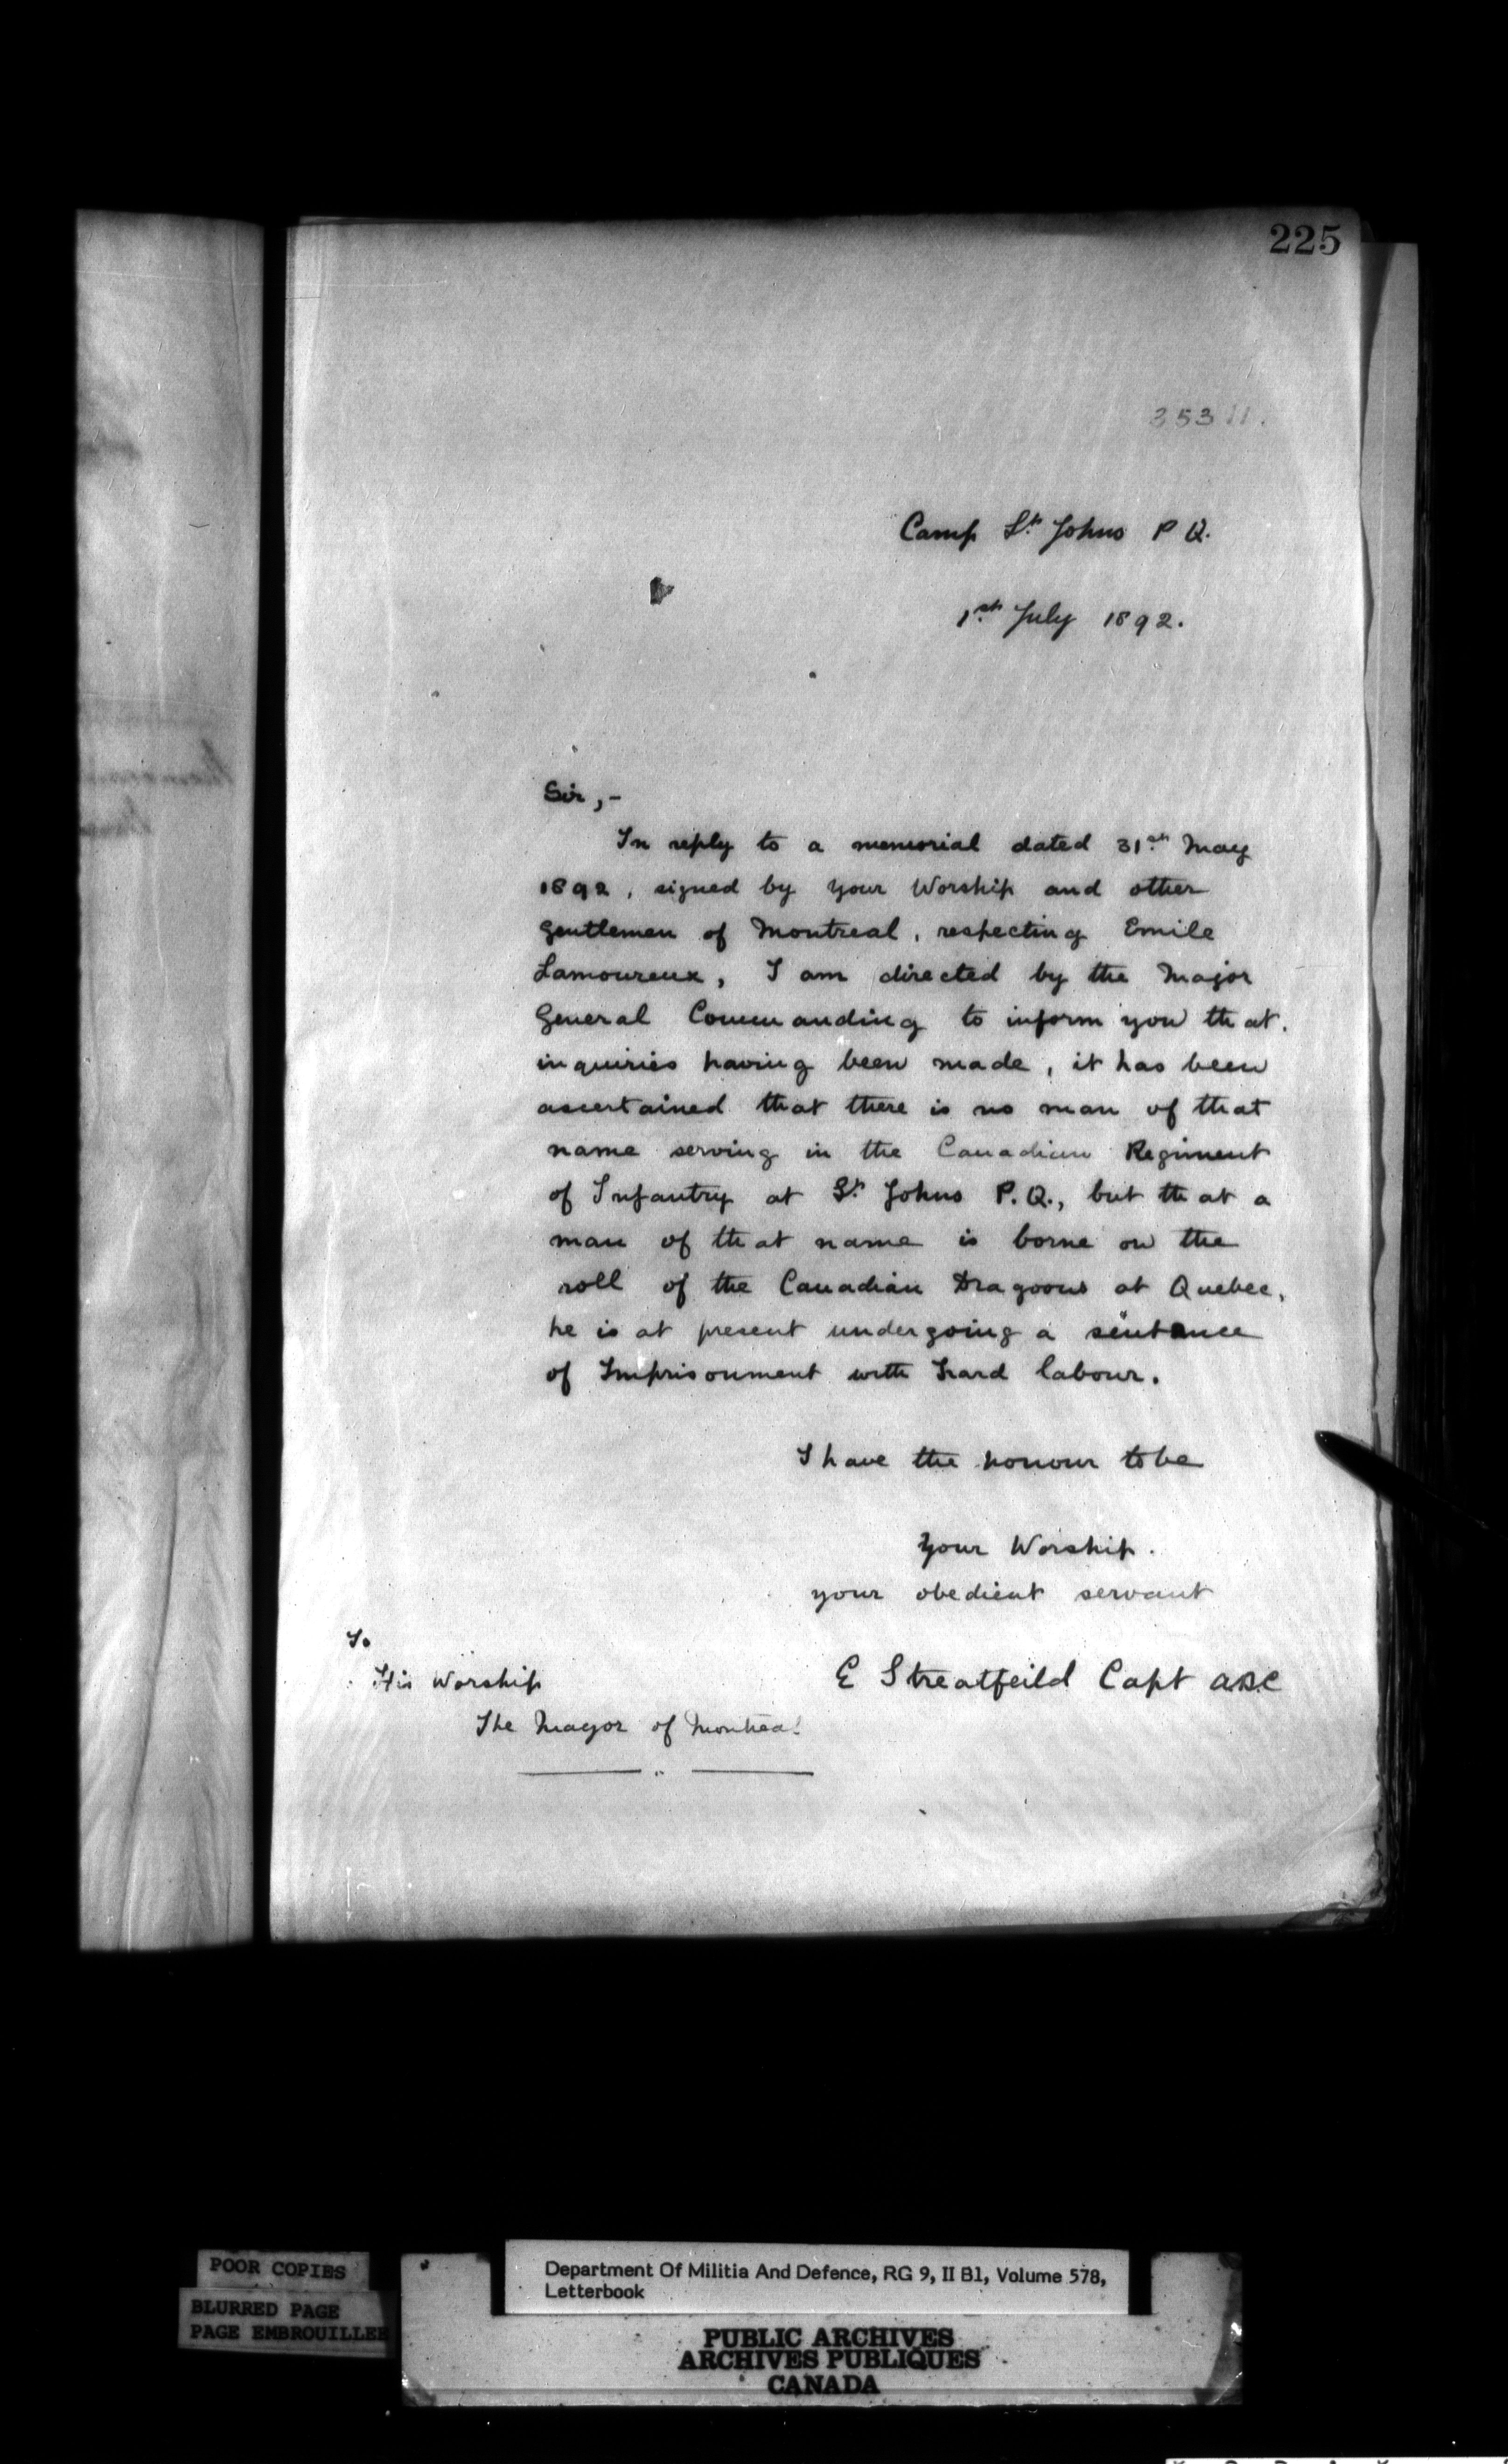 225
35311.
Camp St. Johns P Q.
1st July 1892.
Sir,-
In reply to a memorial dated 31st May
1892, signed by your Worship and other
Gentlemen of Montreal, respecting Emile
Lamoureux, I am directed by the Major
General Commanding to inform you that.
inquiries having been made, it has been
ascertained that there is no man of that
name serving in the Canadian Regiment
of Infantry at St. Johns P.Q., but that a
man of that name is borne on the
roll of the Canadian Dragoons at Quebec,
he is at present undergoing a sentence
of Imprisonment with Hard labour.
I have the honour to be
Your Worship.
your obedient servant
E Streatfeild Capt ADC
To
His Worship
The Mayor of Montreal
POOR COPIES
BLURRED PAGE
PAGE EMBROUILLEE
Department Of Militia And Defence, RG 9, II B1, Volume 578,
Letterbook
PUBLIC ARCHIVES
ARCHIVES PUBLIQUES
CANADA